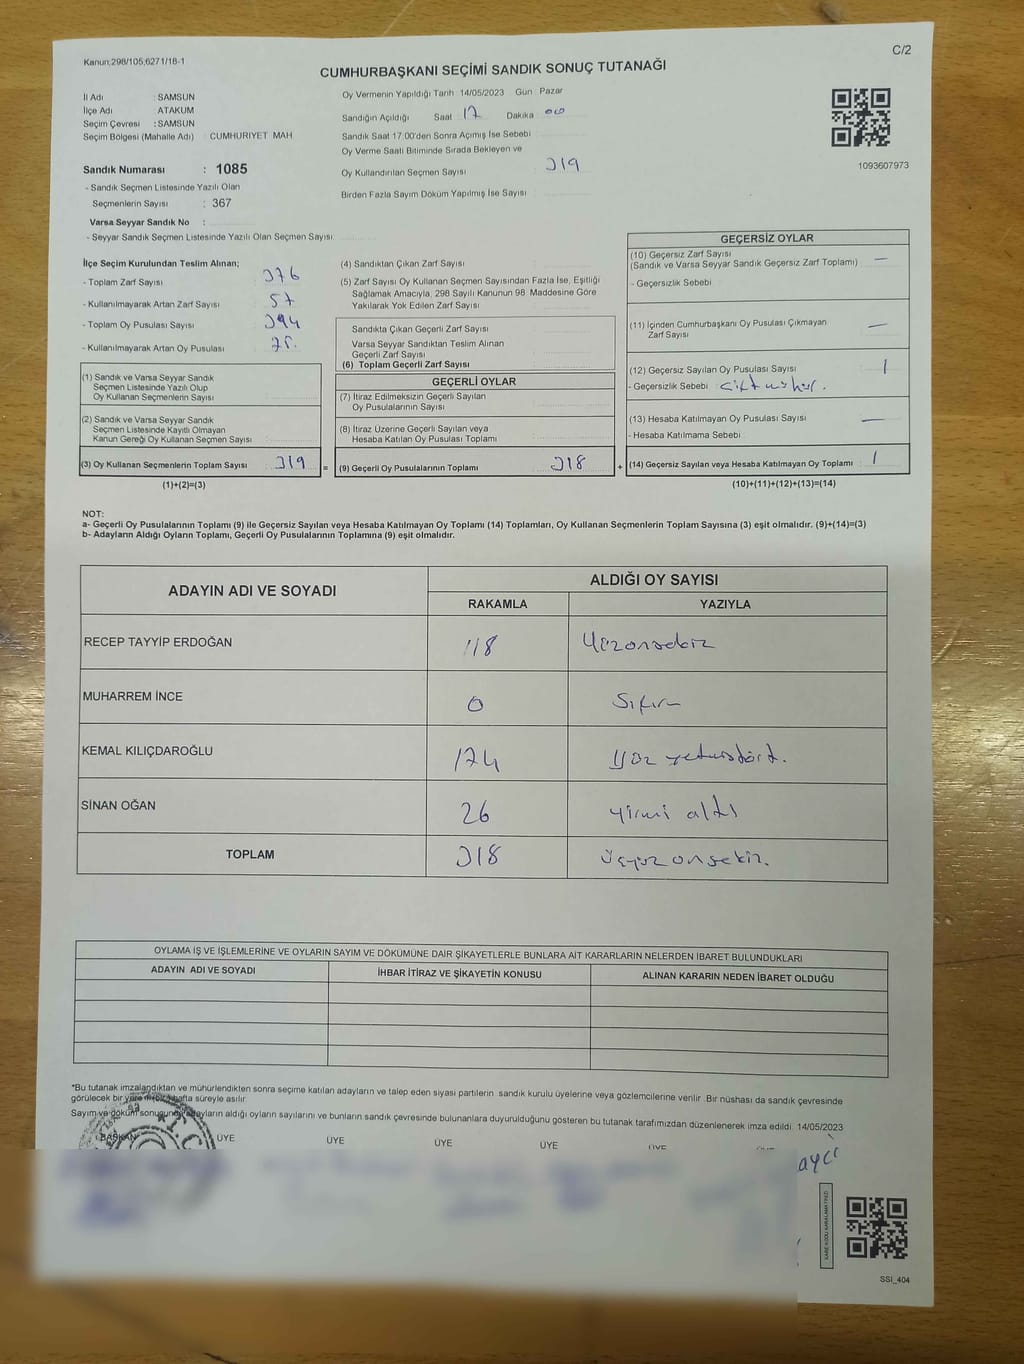 Kanun:298/105,6271/18-1
C/2
CUMHURBAŞKANI SEÇİMİ SANDIK SONUÇ TUTANAĞI
İl Adı : SAMSUN
İlçe Adı : ATAKUM
Seçim Çevresi : SAMSUN
Seçim Bölgesi (Mahalle Adı) : CUMHURIYET MAH
Sandık Numarası : 1085
- Sandık Seçmen Listesinde Yazılı Olan
Seçmenlerin Sayısı : 367
Varsa Seyyar Sandık No :
- Seyyar Sandık Seçmen Listesinde Yazılı Olan Seçmen Sayısı:
Oy Vermenin Yapıldığı Tarih : 14/05/2023 Gün : Pazar
Sandığın Açıldığı Saat 17 Dakika 00
Sandık Saat 17:00'den Sonra Açımış İse Sebebi
Oy Verme Saati Bitiminde Sırada Bekleyen ve
Oy Kullandırılan Seçmen Sayısı 319
Birden Fazla Sayım Döküm Yapılmış İse Sayısı
1093607973
İlçe Seçim Kurulundan Teslim Alınan;
- Toplam Zarf Sayısı 376
- Kullanılmayarak Artan Zarf Sayısı 57
- Toplam Oy Pusulası Sayısı 394
- Kullanılmayarak Artan Oy Pusulası 75.
(1) Sandık ve Varsa Seyyar Sandık
Seçmen Listesinde Yazılı Olup
Oy Kullanan Seçmenlerin Sayısı
(2) Sandık ve Varsa Seyyar Sandık
Seçmen Listesinde Kayıtlı Olmayan
Kanun Gereği Oy Kullanan Seçmen Sayısı
(3) Oy Kullanan Seçmenlerin Toplam Sayısı 319 =
(1)+(2)=(3)
(4) Sandıktan Çıkan Zarf Sayısı
(5) Zarf Sayısı Oy Kullanan Seçmen Sayısından Fazla İse, Eşitliği
Sağlamak Amacıyla, 298 Sayılı Kanunun 98. Maddesine Göre
Yakılarak Yok Edilen Zarf Sayısı
Sandıkta Çıkan Geçerli Zarf Sayısı
Varsa Seyyar Sandıktan Teslim Alınan
Geçerli Zarf Sayısı
(6) Toplam Geçerli Zarf Sayısı
GEÇERLİ OYLAR
(7) İtiraz Edilmeksizin Geçerli Sayılan
Oy Pusulalarının Sayısı
(8) İtiraz Üzerine Geçerli Sayılan veya
Hesaba Katılan Oy Pusulası Toplamı
(9) Geçerli Oy Pusulalarının Toplamı 318 +
GEÇERSİZ OYLAR
(10) Geçersiz Zarf Sayısı —
(Sandık ve Varsa Seyyar Sandık Geçersiz Zarf Toplamı)
- Geçersizlik Sebebi
(11) İçinden Cumhurbaşkanı Oy Pusulası Çıkmayan —
Zarf Sayısı
(12) Geçersiz Sayılan Oy Pusulası Sayısı 1
- Geçersizlik Sebebi Çift mühür.
(13) Hesaba Katılmayan Oy Pusulası Sayısı —
- Hesaba Katılmama Sebebi
(14) Geçersiz Sayılan veya Hesaba Katılmayan Oy Toplamı 1
(10)+(11)+(12)+(13)=(14)
NOT:
a- Geçerli Oy Pusulalarının Toplamı (9) ile Geçersiz Sayılan veya Hesaba Katılmayan Oy Toplamı (14) Toplamları, Oy Kullanan Seçmenlerin Toplam Sayısına (3) eşit olmalıdır. (9)+(14)=(3)
b- Adayların Aldığı Oyların Toplamı, Geçerli Oy Pusulalarının Toplamına (9) eşit olmalıdır.
ADAYIN ADI VE SOYADI
ALDIĞI OY SAYISI
RAKAMLA YAZIYLA
RECEP TAYYİP ERDOĞAN 118 Yüzonsekiz
MUHARREM İNCE 0 Sıfır
KEMAL KILIÇDAROĞLU 174 Yüz yetmişdört.
SİNAN OĞAN 26 yirmi altı
TOPLAM 318 Üçyüz onsekiz.
OYLAMA İŞ VE İŞLEMLERINE VE OYLARIN SAYIM VE DÖKÜMÜNE DAİR ŞİKAYETLERLE BUNLARA AİT KARARLARIN NELERDEN İBARET BULUNDUKLARI
ADAYIN ADI VE SOYADI
İHBAR İTİRAZ VE ŞİKAYETİN KONUSU
ALINAN KARARIN NEDEN İBARET OLDUĞU
*Bu tutanak imzalandıktan ve mühürlendikten sonra seçime katılan adayların ve talep eden siyasi partilerin sandık kurulu üyelerine veya gözlemcilerine verilir. Bir nüshası da sandık çevresinde
görülecek bir yere bir hafta süreyle asılır.
Sayım ve döküm sonucunda adayların aldığı oyların sayılarını ve bunların sandık çevresinde bulunanlara duyurulduğunu gösteren bu tutanak tarafımızdan düzenlenerek imza edildi. 14/05/2023
BAŞKAN ÜYE ÜYE ÜYE ÜYE ÜYE
T.C.
SSI_404